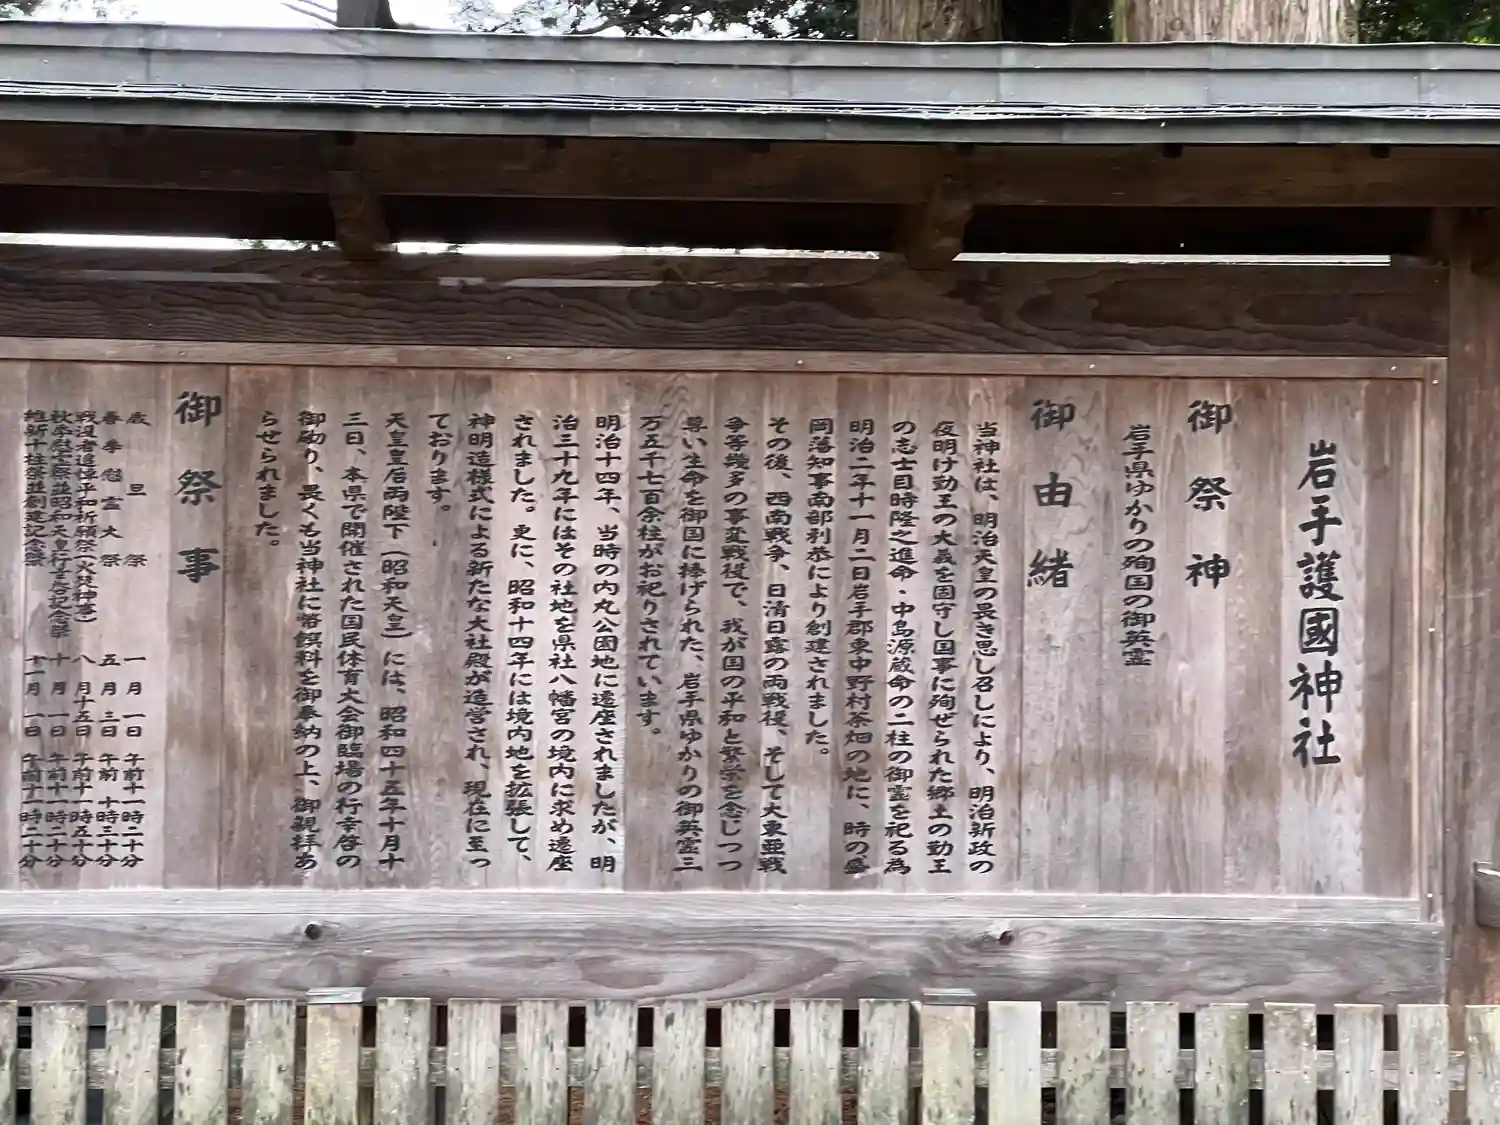 岩手護國神社
御祭神
岩手県ゆかりの殉国の御英霊
御由緒
当神社は、明治天皇の畏き思し召しにより、明治新政の
夜明け勤王の大義を固守し国事に殉ぜられた郷土の勤王
の志士目時隆之進命・中島源蔵命の二柱の御霊を祀る為
明治二年十一月二日岩手郡東中野村茶畑の地に、時の盛
岡藩知事南部利恭により創建されました。
その後、西南戦争、日清日露の両戦役、そして大東亜戦
争等幾多の事変戦役で、我が国の平和と繁栄を念じつつ
尊い生命を御国に捧げられた、岩手県ゆかりの御英霊三
万五千七百余柱がお祀りされています。
明治十四年、当時の内丸公園地に遷座されましたが、明
治三十九年にはその社地を県社八幡宮の境内に求め遷座
されました。更に、昭和十四年には境内地を拡張して、
神明造様式による新たな大社殿が造営され、現在に至っ
ております。
天皇皇后両陛下（昭和天皇）には、昭和四十五年十月十
三日、本県で開催された国民体育大会御臨場の行幸啓の
御砌り、畏くも当神社に幣饌料を御奉納の上、御親拝あ
らせられました。
御祭事
歳旦祭 一月 一日 午前十一時二十分
春季慰霊大祭 五月 三日 午前 十時三十分
戦没者追悼平和祈願祭（火焚神事） 八月十五日 午前十一時五十分
秋季慰霊祭並昭和天皇行幸啓記念祭 十月 一日 午前十一時二十分
維新十柱祭並創建記念祭 十一月 一日 午前十一時二十分